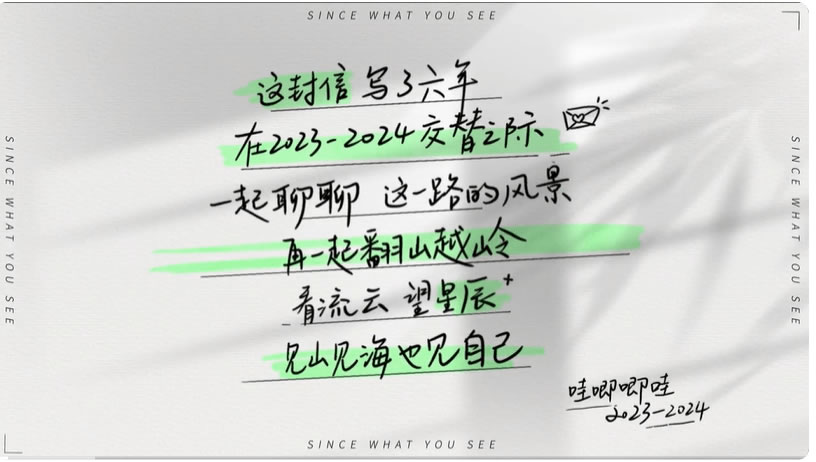 SINCE WHAT YOU SEE
这封信写了六年
在2023-2024交替之际
一起聊聊 这一路的风景
再一起翻山越岭
看流云 望星辰
见山见海也见自己
哇唧唧哇
2023-2024
SINCE WHAT YOU SEE
SINCE WHAT YOU SEE
SINCE WHAT YOU SEE